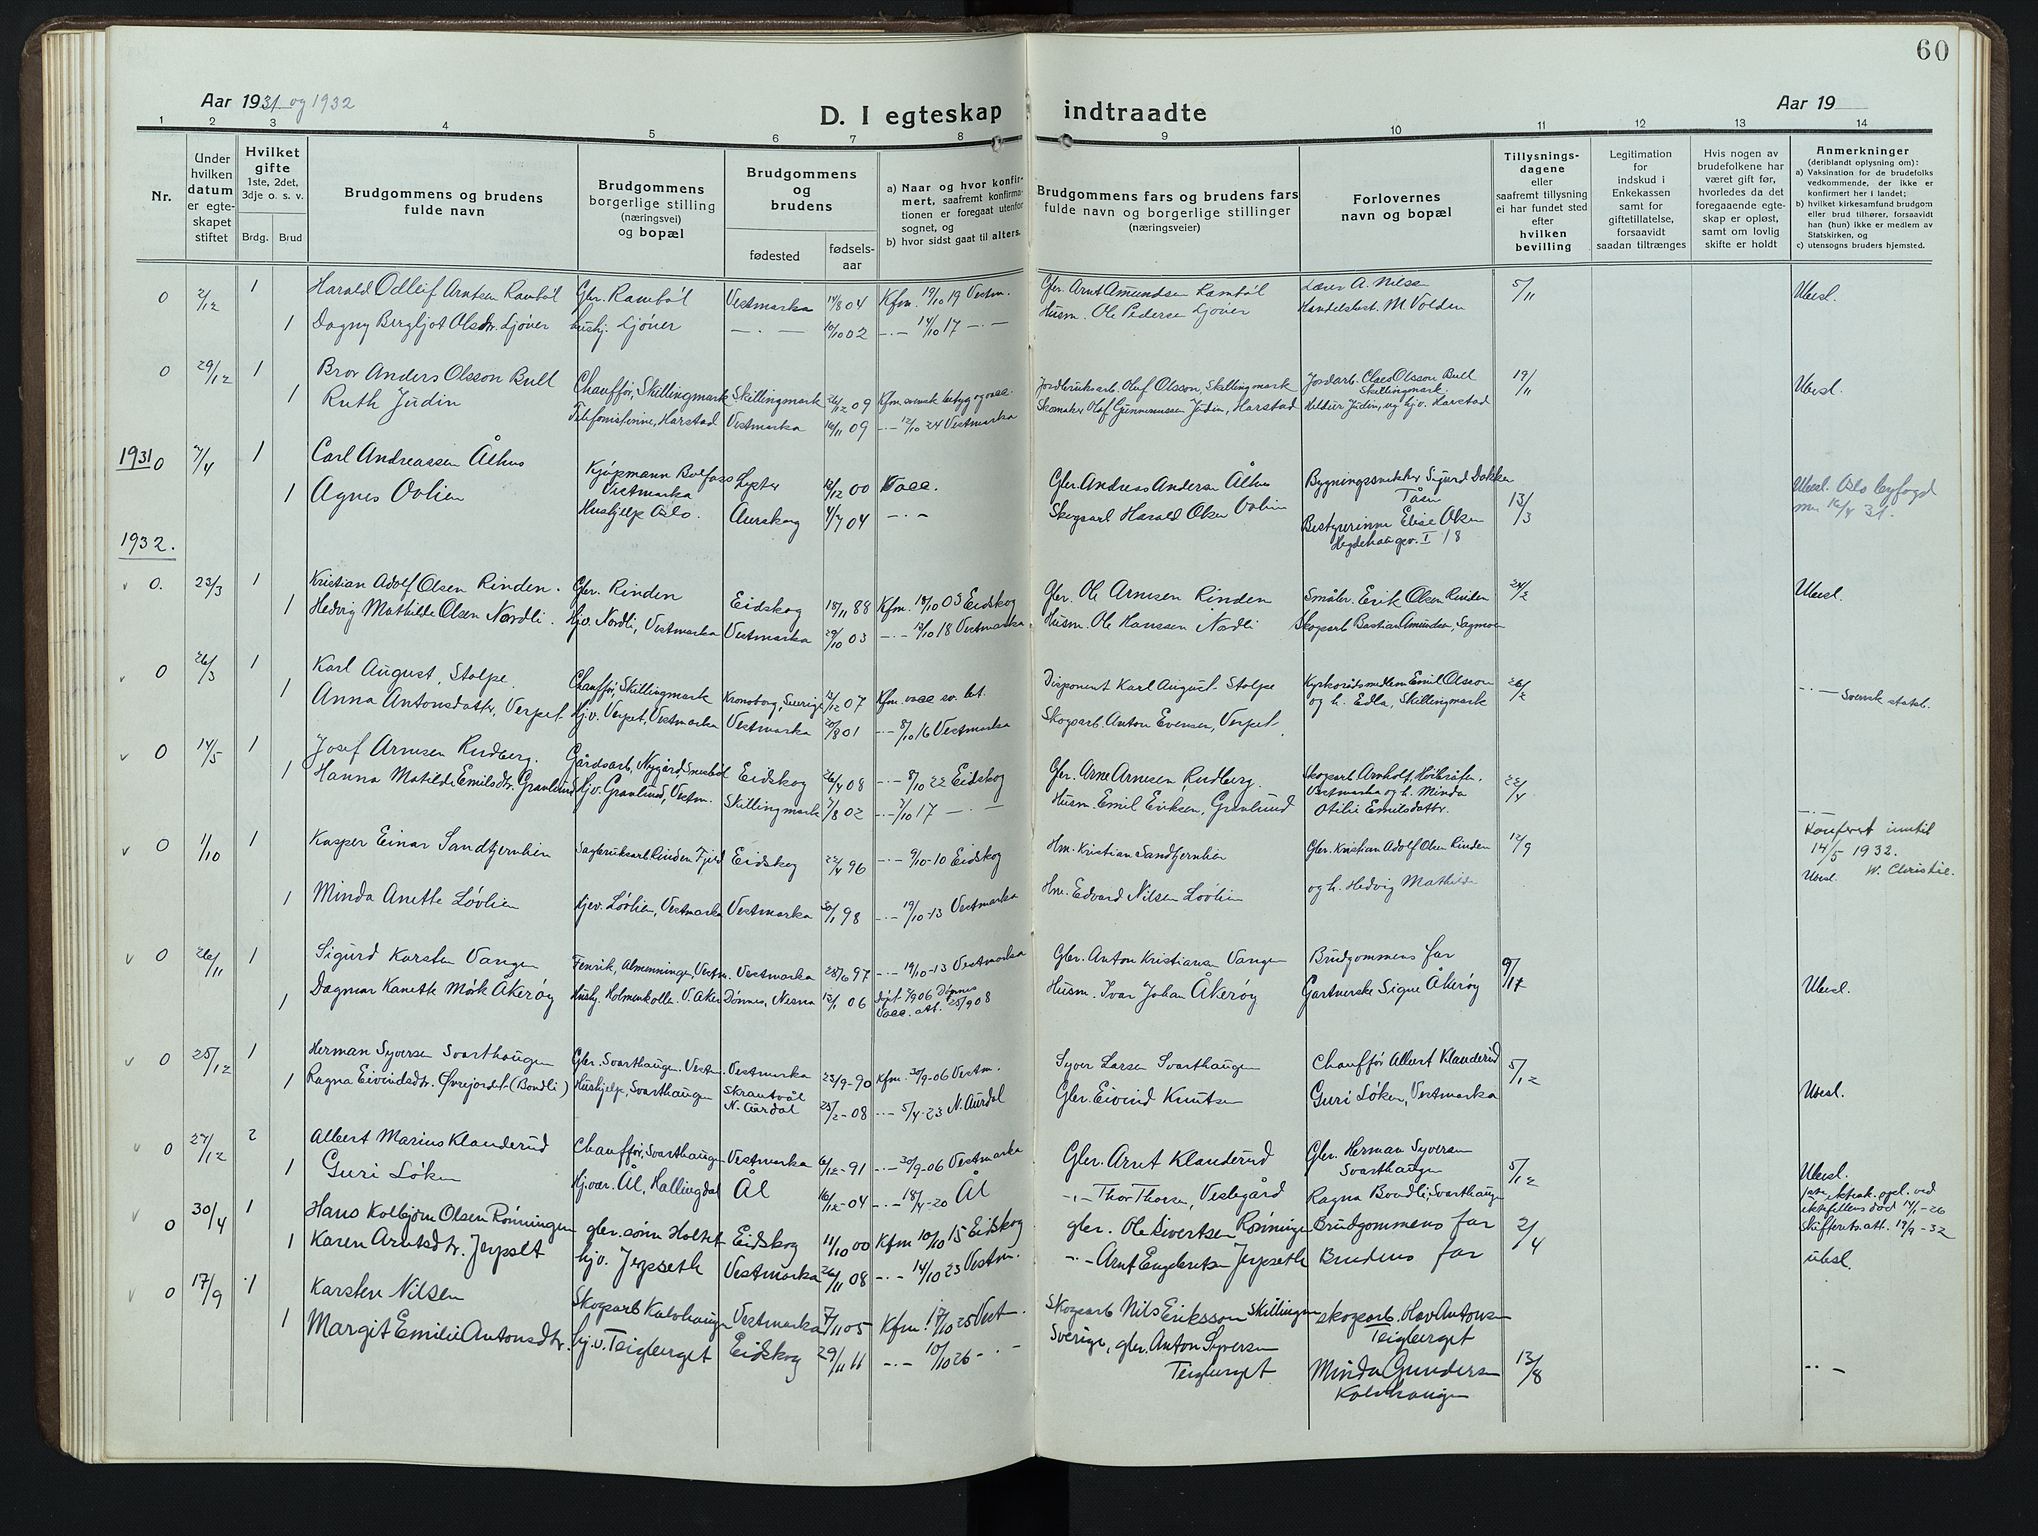 60
Aar 1931 og 1932
D. I egteskap indtraadte
Aar 19
1 2 3 4 5 6 7 8 9 10 11 12 13 14
Nr.
Under hvilken datum er egteskapet stiftet
Hvilket gifte 1ste, 2det, 3dje o. s. v.
Brdg. Brud
Brudgommens og brudens fulde navn
Brudgommens borgerlige stilling (næringsvei) og bopæl
Brudgommens og brudens
fødested
fødselsaar
a) Naar og hvor konfirmert, saafremt konfirmationen er foregaat utenfor sognet, og
b) hvor sidst gaat til alters.
Brudgommens fars og brudens fars fulde navn og borgerlige stillinger (næringsveier)
Forlovernes navn og bopæl
Tillysningsdagene eller saafremt tillysning ei har fundet sted efter hvilken bevilling
Legitimation for indskud i Enkekassen samt for giftetillatelse, forsaavidt saadan tiltrænges
Hvis nogen av brudefolkene har været gift før, hvorledes da det foregaaende egteskap er opløst, samt om lovlig skifte er holdt
Anmerkninger (deriblandt oplysning om):
a) Vaksination for de brudefolks vedkommende, der ikke er konfirmert her i landet;
b) hvilket kirkesamfund brudgom eller brud tilhører, forsaavidt han (hun) ikke er medlem av Statskirken, og
c) utensogns bruders hjemsted.
0 2/12 1 Harald Odleif Arntsen Rambøl Gbr. Rambøl Vestmarka 14/8 04 Kfm. 19/10 19 Vestm. Gbr. Arnt Amundsen Rambøl Lærer A. Nilsen 5/11 Ubesl.
1 Dagny Bergljot Olsdtr. Ljøner Hushj. Ljøner — . — 10/10 02 -.- 14/10 17 -.- Husm. Ole Pedersen Ljøner Handelsbest. M. Volden
0 29/12 1 Bror Anders Olsson Bull Chauffør, Skillingmark Skillingmark 26/12 09 Kfm. svensk betyg og vacc. Jordbruksarb. Oluf Olsson, Skillingmark Jordarb. Claes Olsson Bull Skillingmark 19/11 Ubesl.
1 Ruth Judin Telefonistinne, Harstad Vestmarka 16/11 09 -.- 12/10 24 Vestmarka Skomaker Olaf Gunnerussen Judin, Harstad Hildur Judin, ug. hjv. Harstad
1931 0 7/4 1 Carl Andreassen Ålhus Kjøpmann Vestmarka Lyster 12/12 00 Vacc. Gbr. Andreas Andersen Ålhus Bygningssnekker Sigurd Dokken Tåsen 13/3 Ubesl. Oslo byfogd
1 Agnes Ovlien Hushjelp Oslo. Aurskog 4/7 04 -.- Skogsarb Harald Olsen Ovlien Bestyrerinne Elise Olsen Hegdehaugsv. I 18
1932.
v 0. 23/3 1 Kristian Adolf Olsen Rinden. Gbr. Rinden Eidskog 18/11 88 Kfm. 18/10 03 Eidskog Gbr. Ole Arnesen Rinden Småbr. Erik Olsen Rinden 24/2 Ubesl.
1 Hedvig Mathilde Olsen Nordli. Hjv. Nordli, Vestmarka Vestmarka 29/10 03 -.- 13/10 18 Vestmarka Husm. Ole Hanssen Nordli Skogsarb Bastian Amundsen, Sagmoen
v 0 26/3 1 Karl August, Stolpe. Chauffør, Skillingmark Kronoborg, Sverige 12/12 07 Kfm. vacc sv. bet. Disponent Karl August Stolpe Kyrkorådsmedlem Emil Olsson 26/2 -.- Svensk statsb.
1 Anna Antonsdatter, Verpet Hjv. Verpet, Vestmarka Vestmarka 20/8 01 -.- 8/10 16 Vestmarka Skogsarb. Anton Evensen, Verpet. og h. Edla, Skillingmark
v 0 14/5 1 Josef Arnesen Rudberg. Gårdsarb, Nygård Eidskog 26/4 08 -.- 8/10 22 Eidskog Gbr. Arne Arnesen, Rudberg. Skogsarb Arnholt, Vestmarka og h. Minda 22/4
1 Hanna Matilde Emilsdtr. Granlund Hjv. Granlund, Vestm. Skillingmark 7/8 02 -.- 7/10 17 -.- Husm. Emil Eriksen, Granlund Otilie Emilsdatter. -.-
v 0 1/10 1 Kasper Einar Sandtjernlien Sagbruksarb Rinden Eidskog 22/4 96 -.- 9/10-10 Eidskog Hm. Kristian Sandtjernlien Gbr. Kristian Adolf Olsen Rinden 12/9 Konferert inntil 14/5 1932. W. Christie. Ubesl.
1 Minda Anette Løvlien Hjev. Løvlien, Vestmarka Vestmarka 30/1 98 -.- 19/10-13 Vestmarka Hm. Edvard Nilsen Løvlien og h. Hedvig Mathilde
v 0 26/11 1 Sigurd Karsten Vangen Fenrik, Almenningen, Vestm. Vestmarka 28/6 97 -.- 19/10-13 Vestmarka Gbr. Anton Kristiansen Vangen Brudgommens far 9/11 Ubesl.
1 Dagmar Kanette Mørk Åkerøy Hushj. Holmenkolle. V. Aker Dønnes, Nesna 12/1 06 Døpt 7/9 06 Dønnes Vacc. att. 25/9 08 Husm. Ivar Johan Åkerøy Gartnerske Signe Åkerøy
v 0 25/12 1 Herman Syversen Svarthaugen Gbr. Svarthaugen. Vestm. Vestmarka 23/9-90 Kfm. 30/9-06 Vestm. Syver Larsen Svarthaugen Chauffør Albert Klanderud 5/12 Ubesl.
1 Ragna Eivindsdtr. Øvrejordet (Bondli) Hushjelp, Svarthaugen Skrautvål N. Aurdal 25/2-08 -.- 5/4-23 N. Aurdal Gbr. Eivind Knutsen Guri Løken, Vestmarka
v 0 27/12 2 Albert Marius Klanderud Chauffør, Svarthaugen Vestmarka 6/12-91 -.- 30/9-06 Vestmarka Gbr. Arnt Klanderud Gbr. Herman Syversen Svarthaugen 5/12 Ubesl.
1 Guri Løken Hj.vær. Ål, Hallingdal Ål 16/12-04 -.- 18/4-20 Ål -.- Thor Thorsen, Veslegård Ragna Bondli, Svarthaugen ektesk. opl. ved ektefellens død 14/1-26 Skifteretts att. 17/9-32
v 0 30/4 1 Hans Kolbjørn Olsen Rønningen gbr. sønn Holtet Eidskog 11/10 00 Kfm 10/10 15 Eidskog gbr. Ole Sivertsen Rønningen Brudgommens far 2/4 ubesl.
1 Karen Arntsdtr. Jerpset hjv. Jerpseth Vestmarka 26/11 08 -.- 14/10 23 Vestm. -.- Arnt Engebretsen Jerpseth Brudens far
v 0 17/9 1 Karsten Nilsen Skogsarb Kalvhaugen Vestmarka 7/11 05 Kfm. 17/10 25 Vest. Skogsarb Nils Eriksson Skillingm. Sverige, skogsarb. Olav Antonsen Teigberget 13/8 -.-
1 Margit Emilie Antonsdtr. hj.v. Teigberget Eidskog 29/11 11 -.- 10/10 26 -.- gbr. Anton Syversen Teigberget Minda Gundersen Kalvhaugen